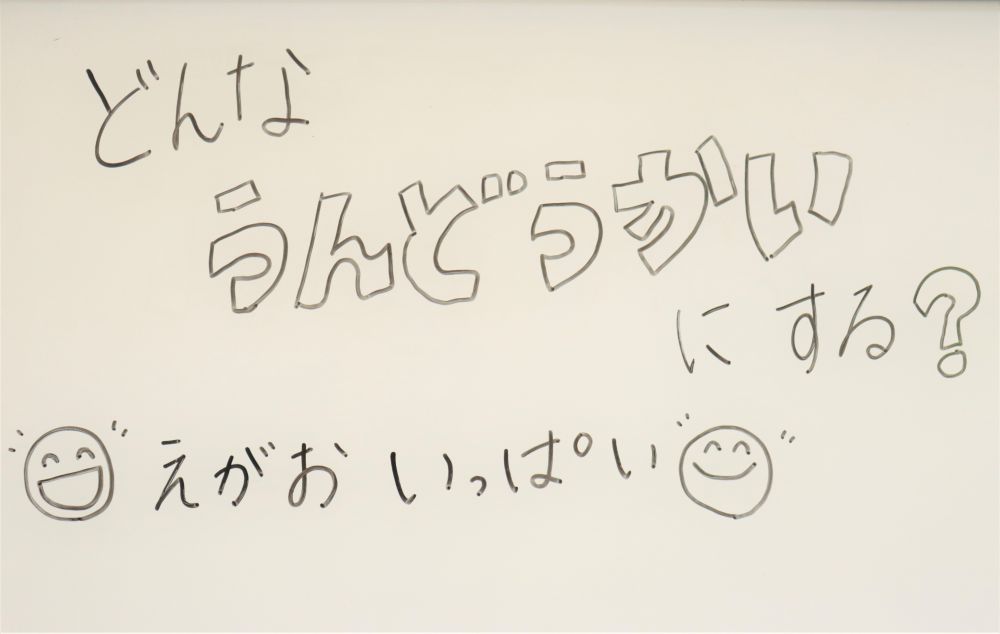 どんな
うんどうかい
にする?
えがおいっぱい